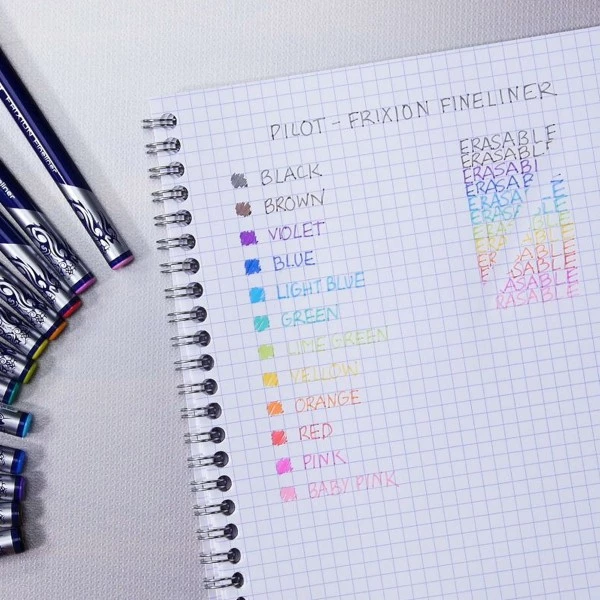 PILOT - FRIXION FINELINER
BLACK
BROWN
VIOLET
BLUE
LIGHT BLUE
GREEN
LIME GREEN
YELLOW
ORANGE
RED
PINK
BABY PINK
ERASABLE
ERASABL
ERASABL
ERASAB
ERASA E
ER ABLE
E SABLE
ASABLE
RASABLE
FRIXION Fineliner